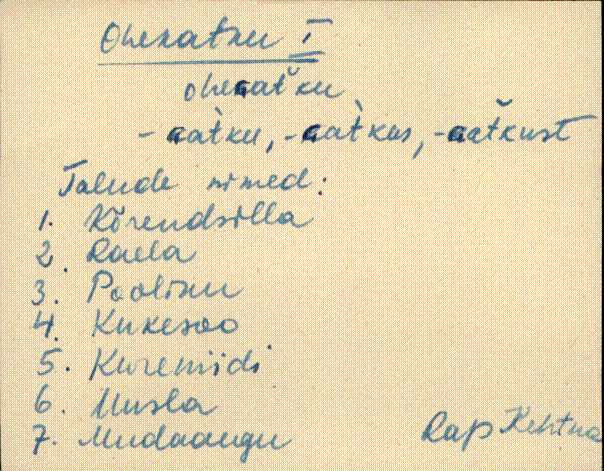 Ohekatku I
ohekat̆ku
-kàtku, -kàtkus, -kat̆kust
Talude nimed:
1. Kõrendsilla
2. Raela
3. Pooliku
4. Kukesoo
5. Kureniidi
6. Uusla
7. Mudaaugu
Rap Kehtna